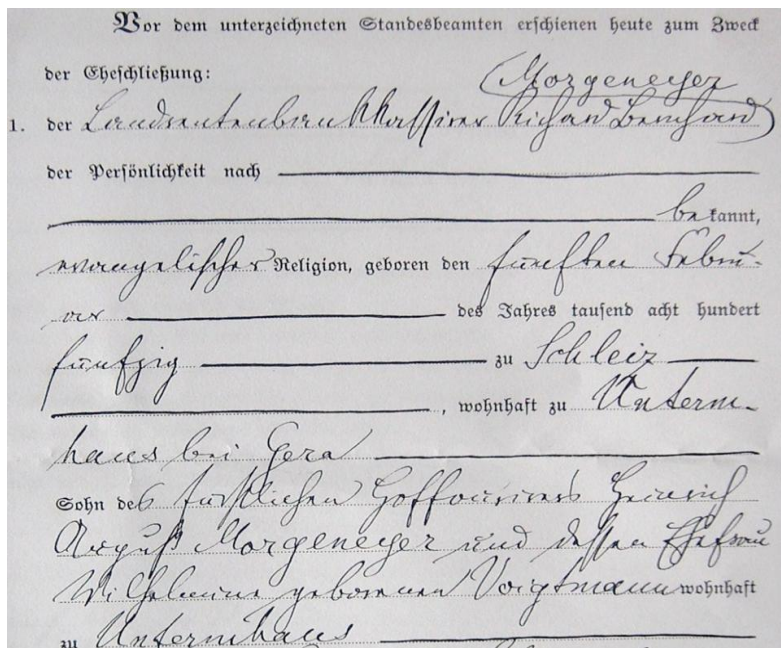 Vor dem unterzeichneten Standesbeamten erschienen heute zum Zweck
der Eheschließung:
(Morgeneyer
1. der Landrentenbankkassirer Richard Bernhard)
der Persönlichkeit nach
be kannt,
evangelischer Religion, geboren den fünften Febru-
ar des Jahres tausend acht hundert
fünfzig zu Schleiz
, wohnhaft zu Unterm-
haus bei Gera
Sohn des fürstlichen Hoffouriers Heinrich
August Morgeneyer und dessen Ehefrau
Wilhelmine geborenen Voigtmann wohnhaft
zu Untermhaus